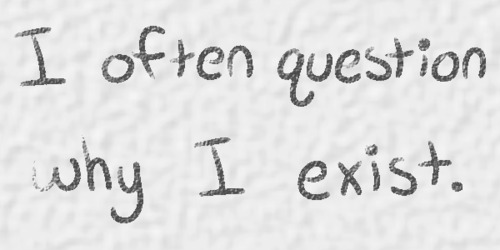 I often question
why I exist.